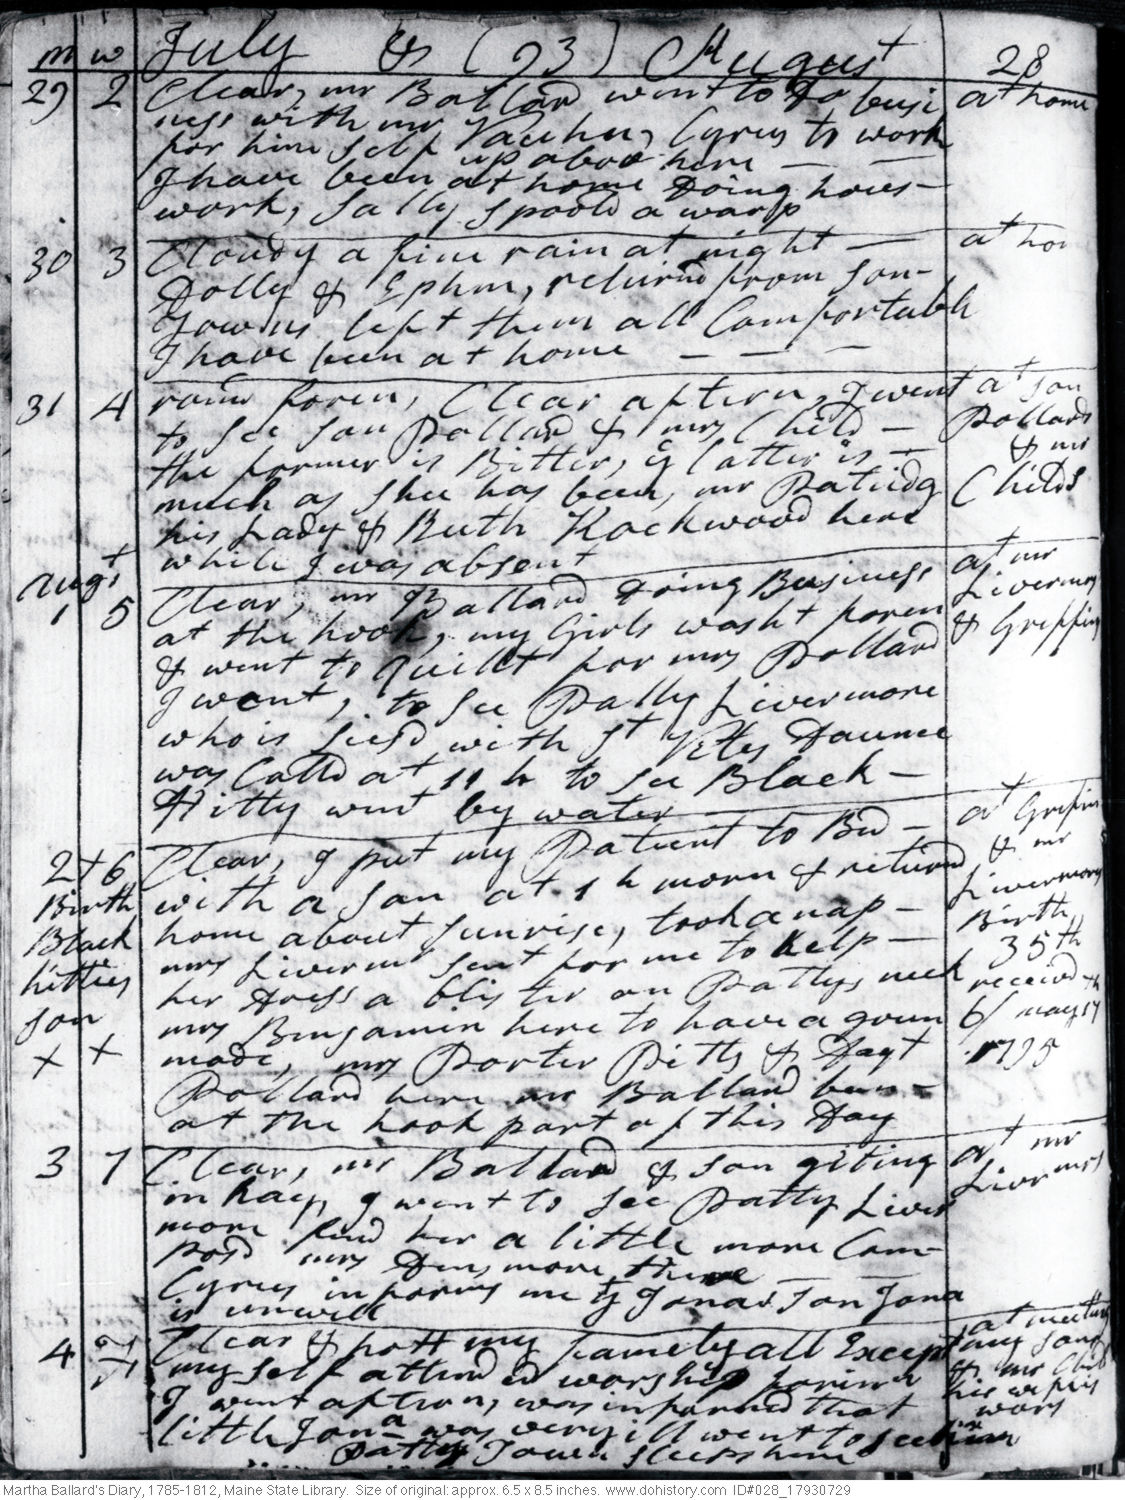 m w July & (93) August 28
29 2 Clear, mr Ballard went to Do busi at home
ness with mr Vaughn, Cyrus to work
for him self up above here — —
I have been at home Doing hous-
work, Sally spoold a warp
30 3 Cloudy a fine rain at night — at hom
Dolly & Ephm, returnd from son
Towns left them all Comfortabl
I have been at home — — —
31 4 raind foren, Clear aftern, I went at son
to see son Pollard & mrs Child — Pollards
the former is Bitter, ye latter is — & mr
much as shee has been, mr Patridg Childs
his Lady & Ruth Rockwood here
while I was absent
Augt at mr
1 5 Clear, mr Ballard Doing Business Livermrs
at the hook, my Girls washt foren & Griffins
& went to quillt for mrs Pollard
I went, to see Patty Livermore
who is siesd with St Vits Daunce
was Calld at 11 h to see Black —
Hitty went by water
2 + 6 Clear, I put my Patient to Bd — at Grifins
Birth with a son at 1 h morn & returnd & mr
Black home about sunrise, took a nap — Livermors
hitties mrs Liverm sent for me to help — Birth
son her Dress a blister on Pattys neck 35th
x x mrs Binjamin here to have a goun received
made, mrs Porter Pitts & Dagt 6/ may 17
Pollard here mr Ballard been — 1795
at the hook part of this Day
3 7 Clear, mr Ballard & son giting at mr
in hay, I went to see Patty Liver Livermrs
more find her a little more Com-
posd mrs Dinsmore there
Cyrus informs me yt Jonas son Jona
is unwell
4 Clear & hott my Famely all Except at meeting
my self attended worship forinn my sons
I went aftern, was informed that & mr Child
little Jona was very ill went to see him his wife is wors
Patty Town sleeps here